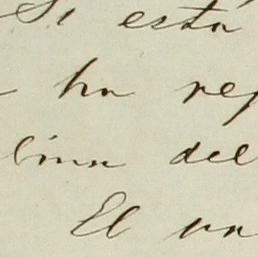 Si esta
ha rep
lina del
El un